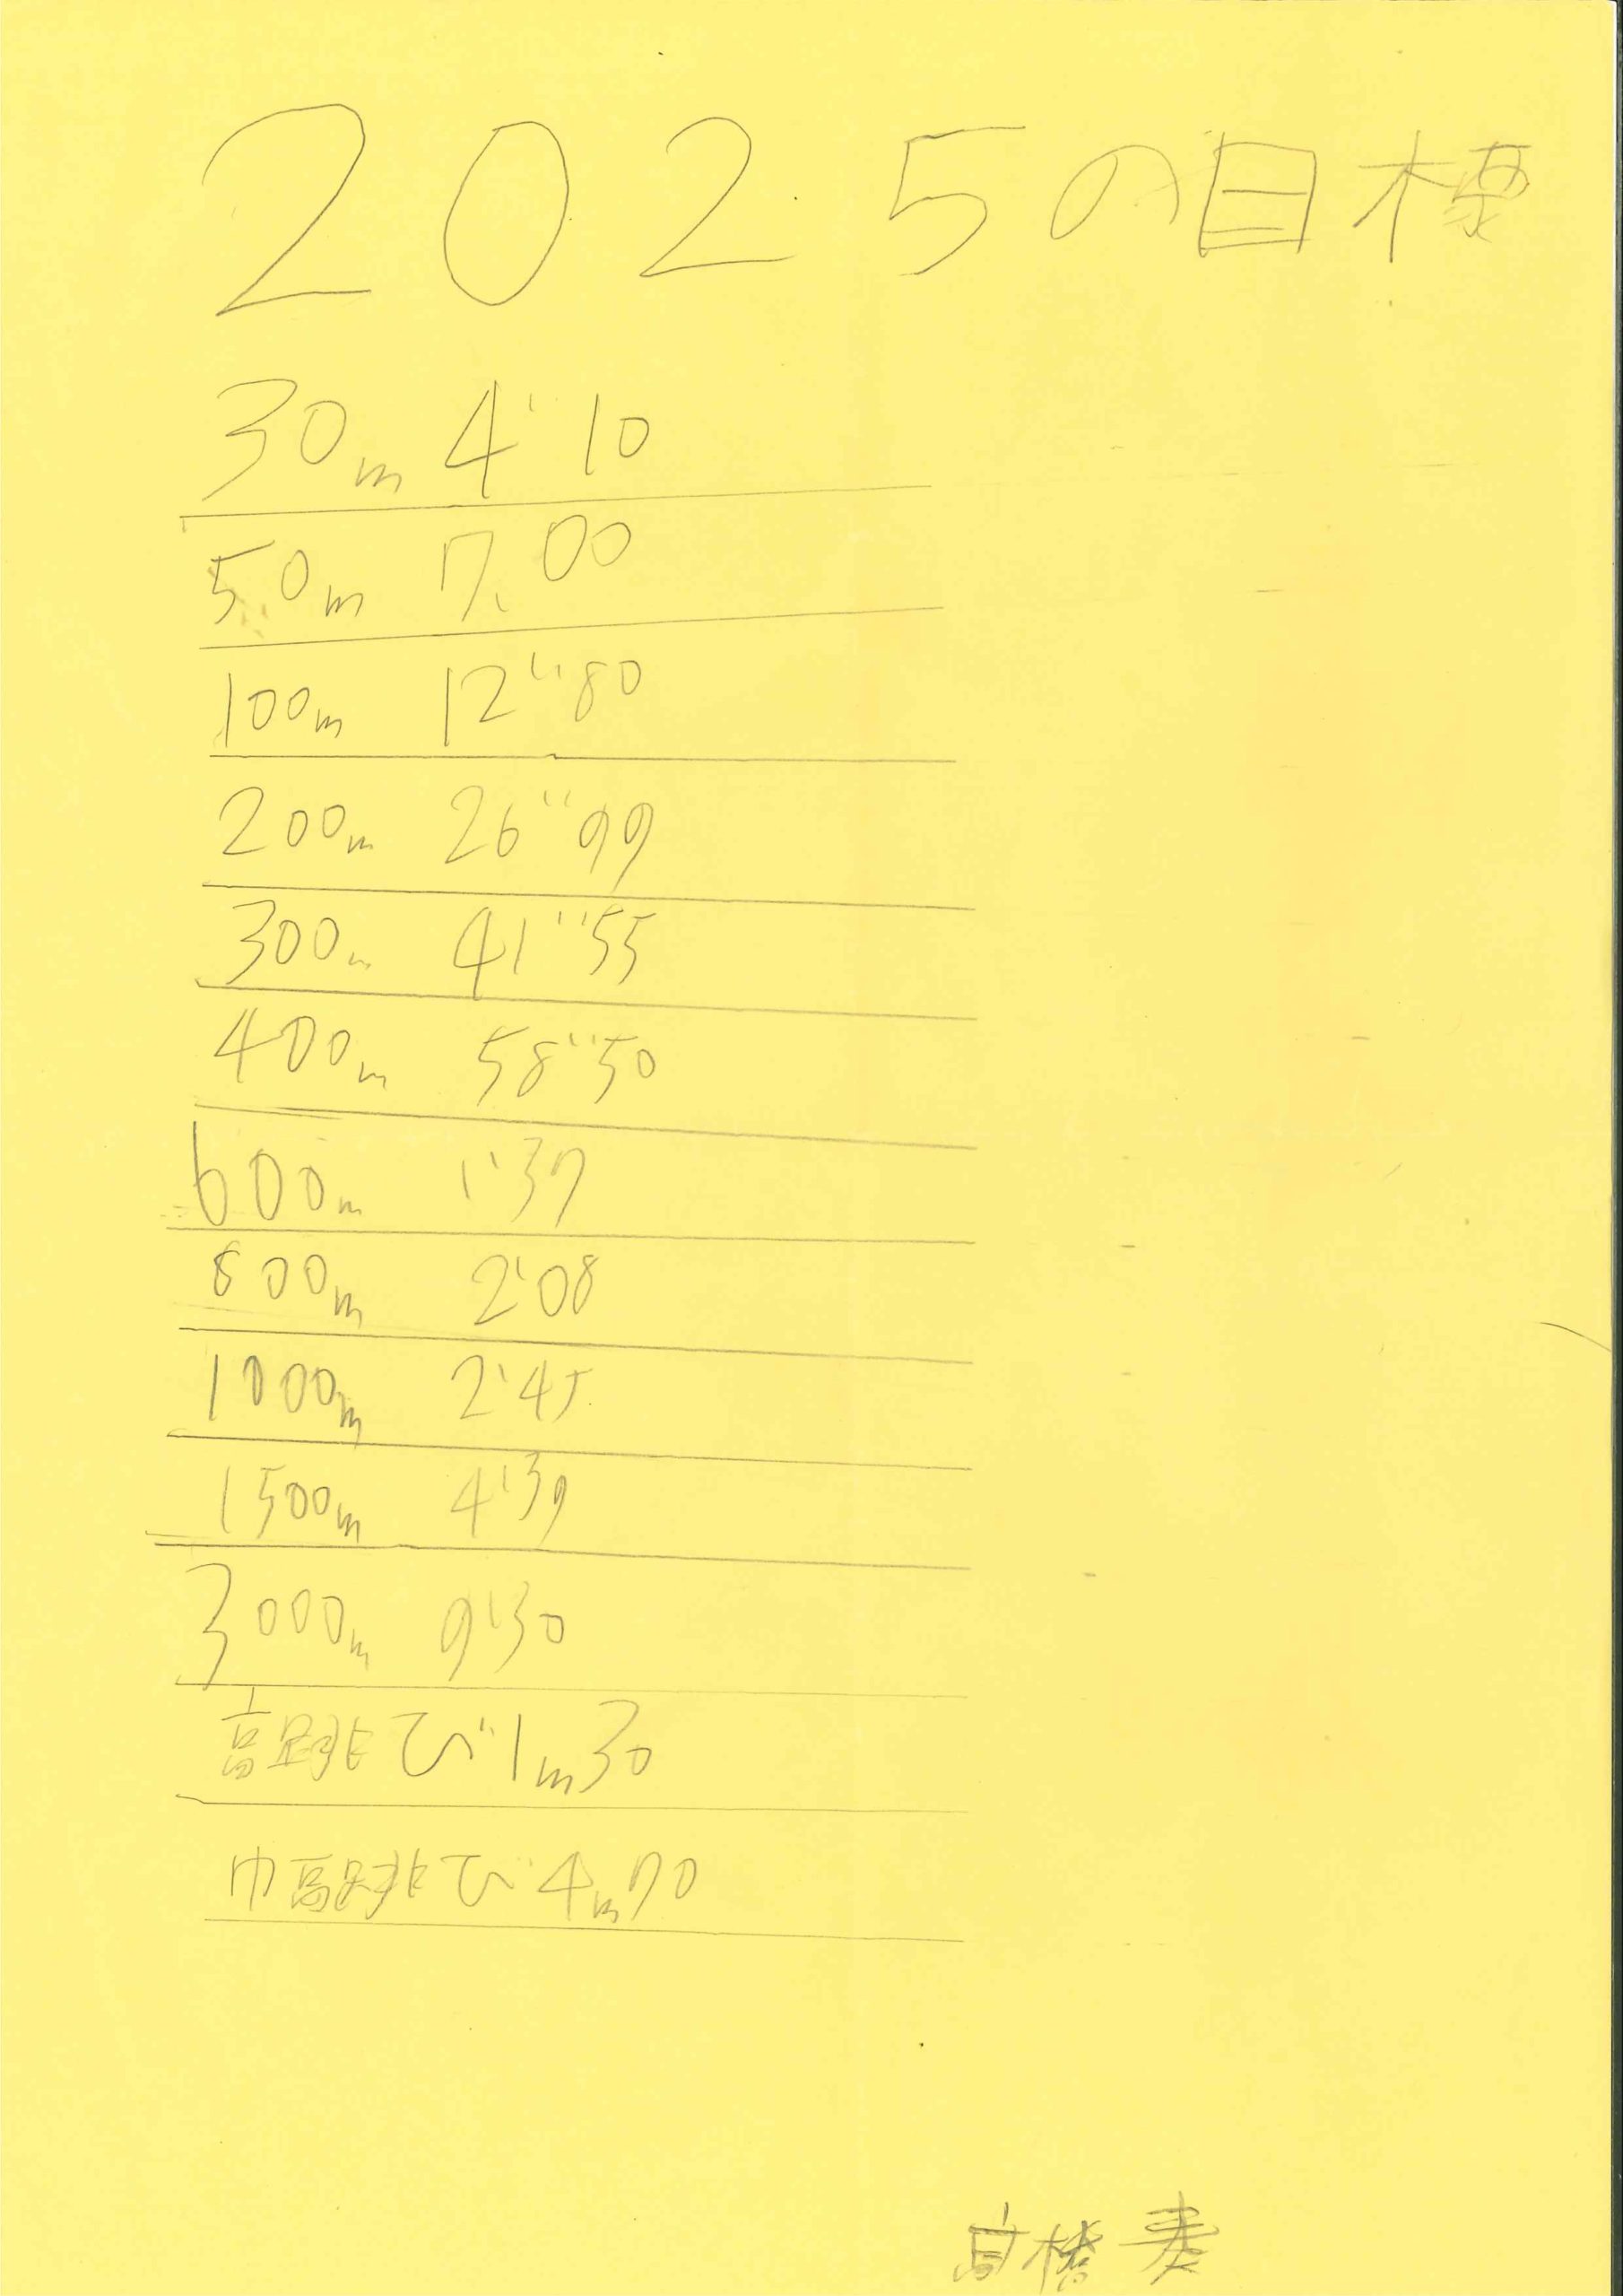 2025の目標
30m 4"10
50m 7.00
100m 12"80
200m 26"99
300m 41"55
400m 58"50
600m 1'37
800m 2'08
1000m 2'45
1500m 4'39
3000m 9'30
高跳び 1m30
巾高跳び 4m70
高橋 奏